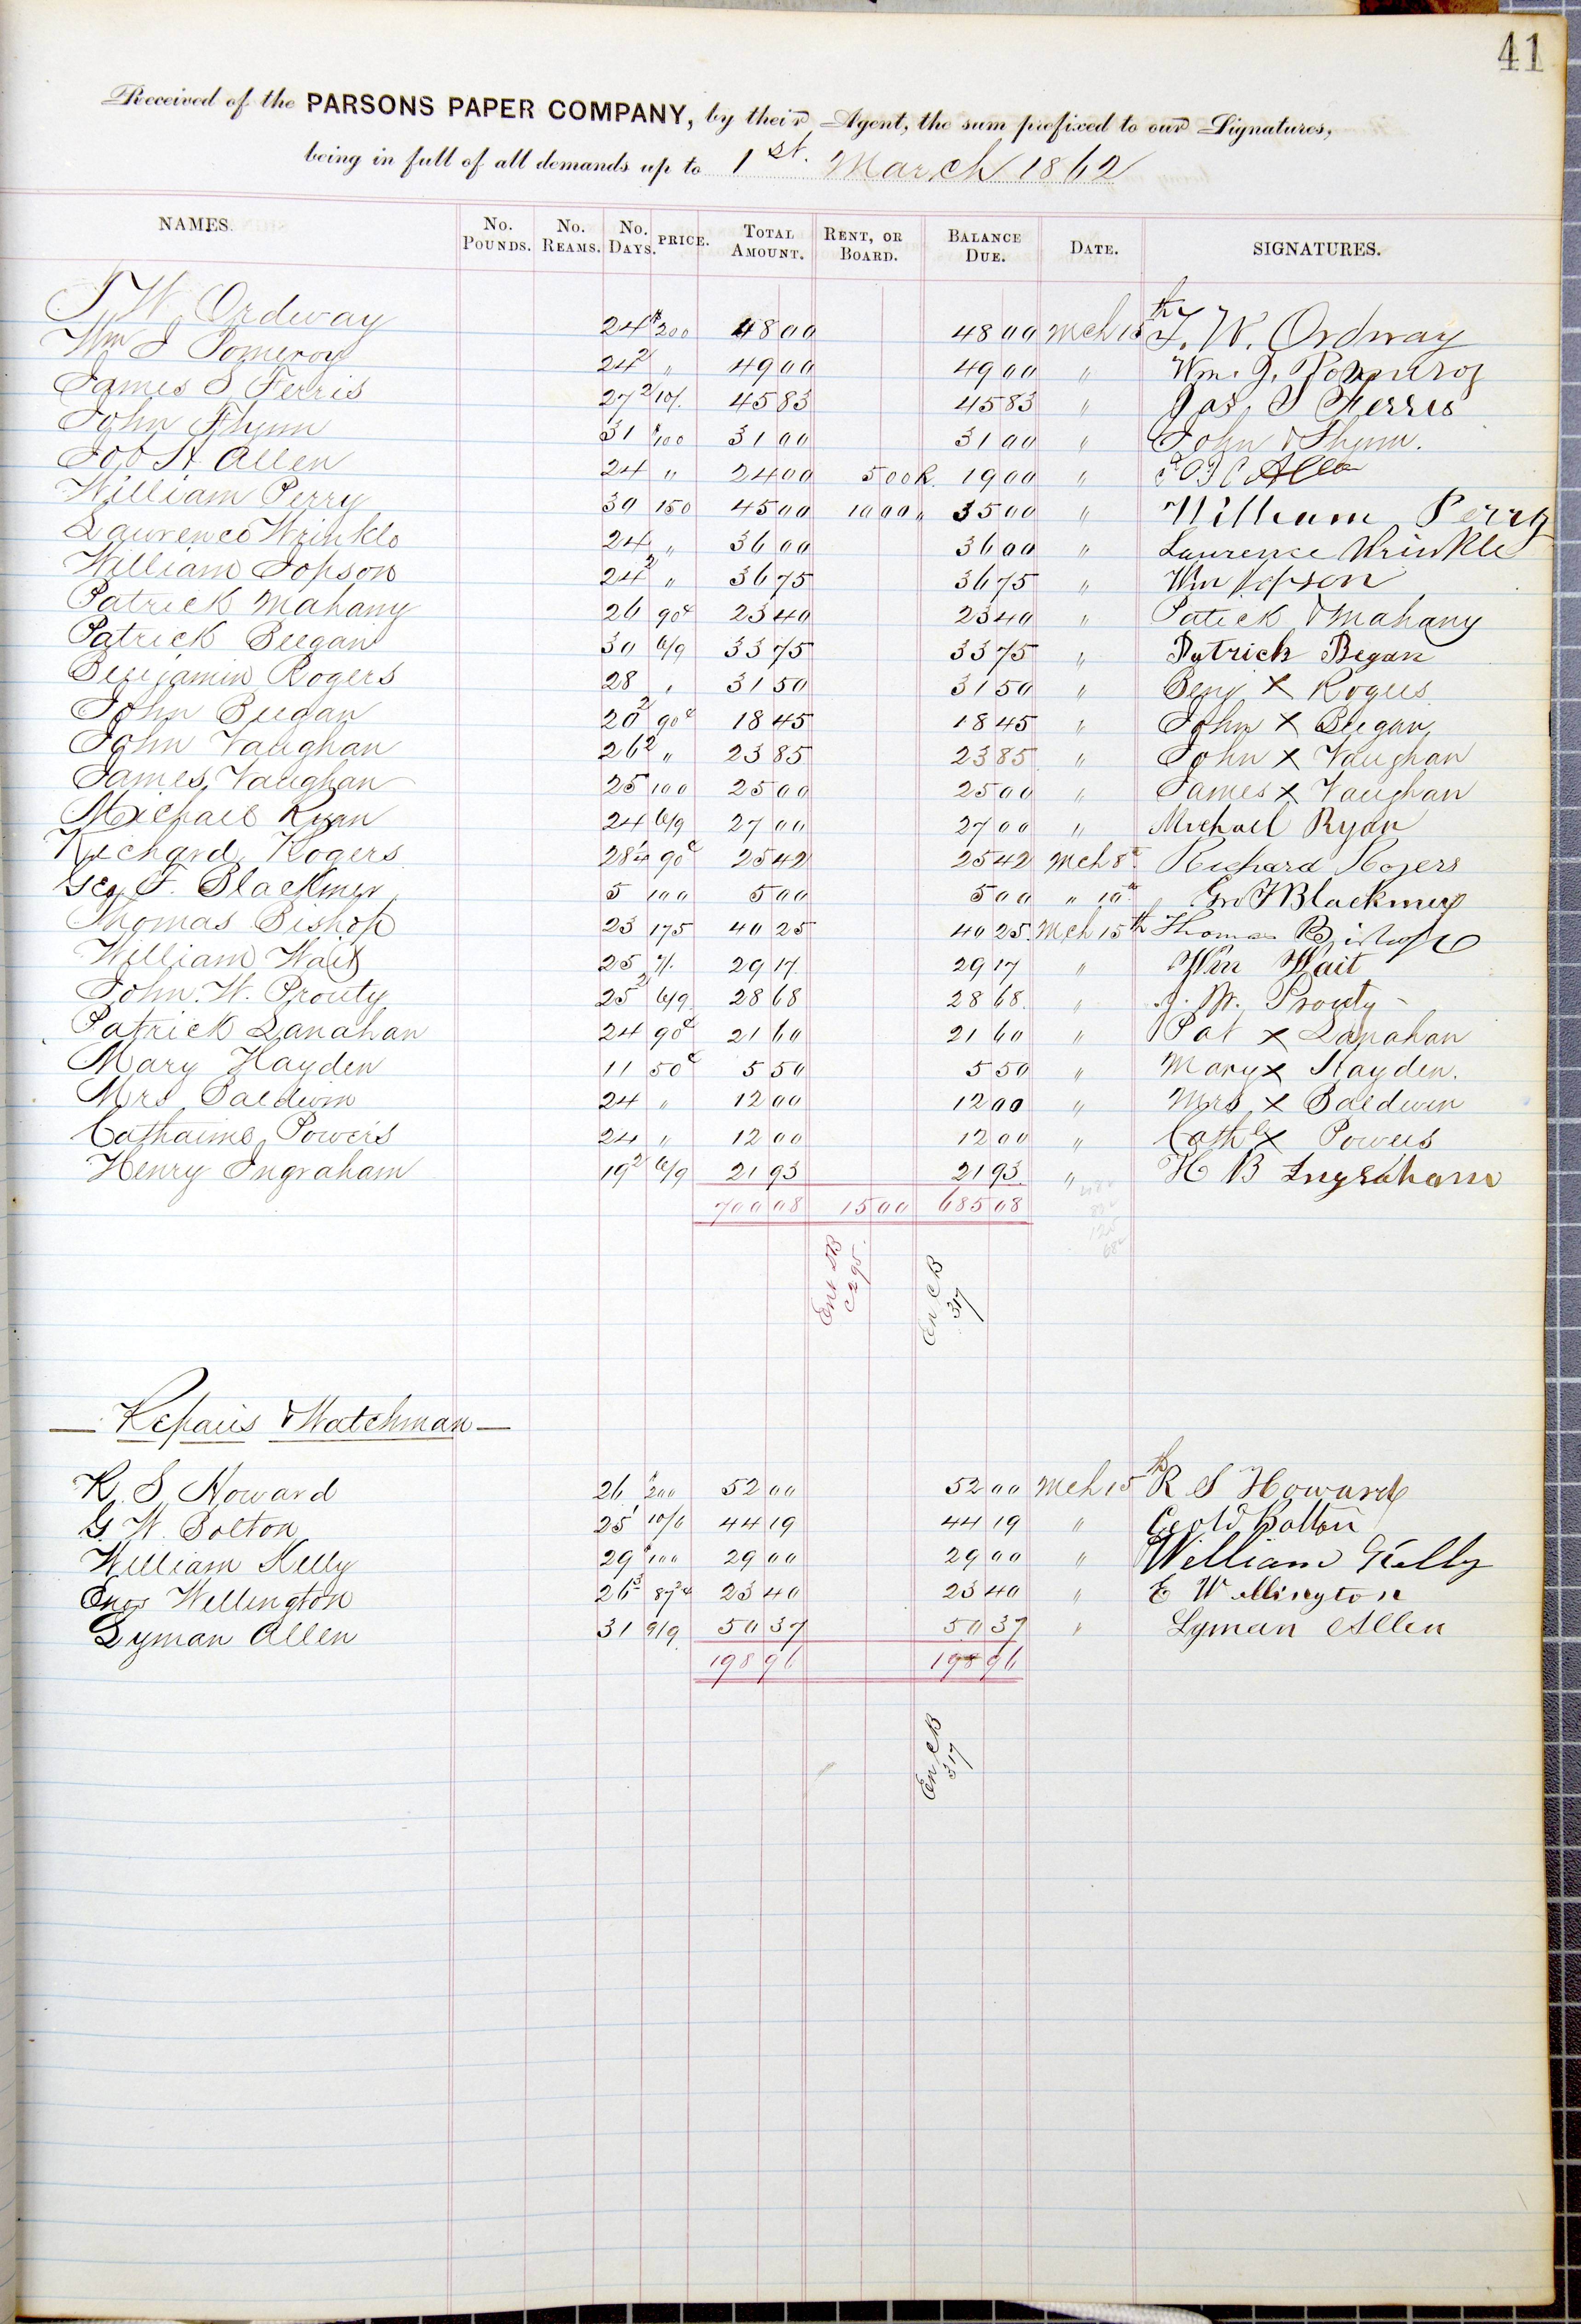 41
Received of the PARSONS PAPER COMPANY, by their Agent, the sum prefixed to our Signatures,
being in full of all demands up to 1st. March 1862
NAMES. No. POUNDS. No. REAMS. No. DAYS. PRICE. TOTAL AMOUNT. RENT, OR BOARD. BALANCE DUE. DATE. SIGNATURES.
T W Ordway 24 $200 48 00 48 00 Mch 15th T. W. Ordway
Wm J Pomeroy 24 2 " 49 00 49 00 " Wm. J. Pomeroy
James S Ferris 27 2 10/. 45 83 45 83 " Jas S Ferris
John Flynn 31 $100 31 00 31 00 " John Flynn.
Job H Allen 24 " 24 00 5 00 R. 19 00 " Allen
William Perry 30 150 45 00 10 00 " 35 00 " William Perry
Lawrence Wrinkle 24 " 36 00 36 00 " Laurence Wrinkle
William Jopson 24 2 " 36 75 36 75 " Wm Jopson
Patrick Mahany 26 90c 23 40 23 40 " Patick Mahany
Patrick Beegan 30 6/9 33 75 33 75 " Patrick Began
Benjamin Rogers 28 " 31 50 31 50 " Benj X Rogers
John Beegan 20 2 90c 18 45 18 45 " John X Beegan
John Vaughan 26 2 " 23 85 23 85 " John X Vaughan
James Vaughan 25 100 25 00 25 00 " James X Vaughan
Michael Ryan 24 6/9 27 00 27 00 " Michael Ryan
Richard Rogers 28 1/4 90c 25 42 25 42 Mch 8th Richard Rogers
Geo F. Blackmer 5 100 5 00 5 00 " 10th Geo F Blackmer
Thomas Bishop 23 175 40 25 40 25 Mch 15th Thomas Bishop
William Wait 25 7/. 29 17 29 17 " Wm Wait
John. W. Prouty 25 2 6/9 28 68 28 68 " J. W. Prouty
Patrick Lanahan 24 90c 21 60 21 60 " Pat X Lanahan
Mary Hayden 11 50c 5 50 5 50 " Mary X Hayden.
Mrs Baldwin 24 " 12 00 12 00 " Mrs X Baldwin
Catharine Powers 24 " 12 00 12 00 " Cath X Powers
Henry Ingraham 19 2 6/9 21 93 21 93 " H B Ingraham
700 08 15 00 685 08
Ent
C 295.
En CB
317
Repairs & Watchman
R. S. Howard 26 $200 52 00 52 00 Mch 15th R S Howard
G W. Bolton 25 1 10/6 44 19 44 19 " Bolton
William Kelly 29 $100 29 00 29 00 " William Kelly
Enos Wellington 26 3 23 40 23 40 " E Wellington
Lyman Allen 31 9/9 50 37 50 37 " Lyman Allen
198 96 198 96
En CB
317